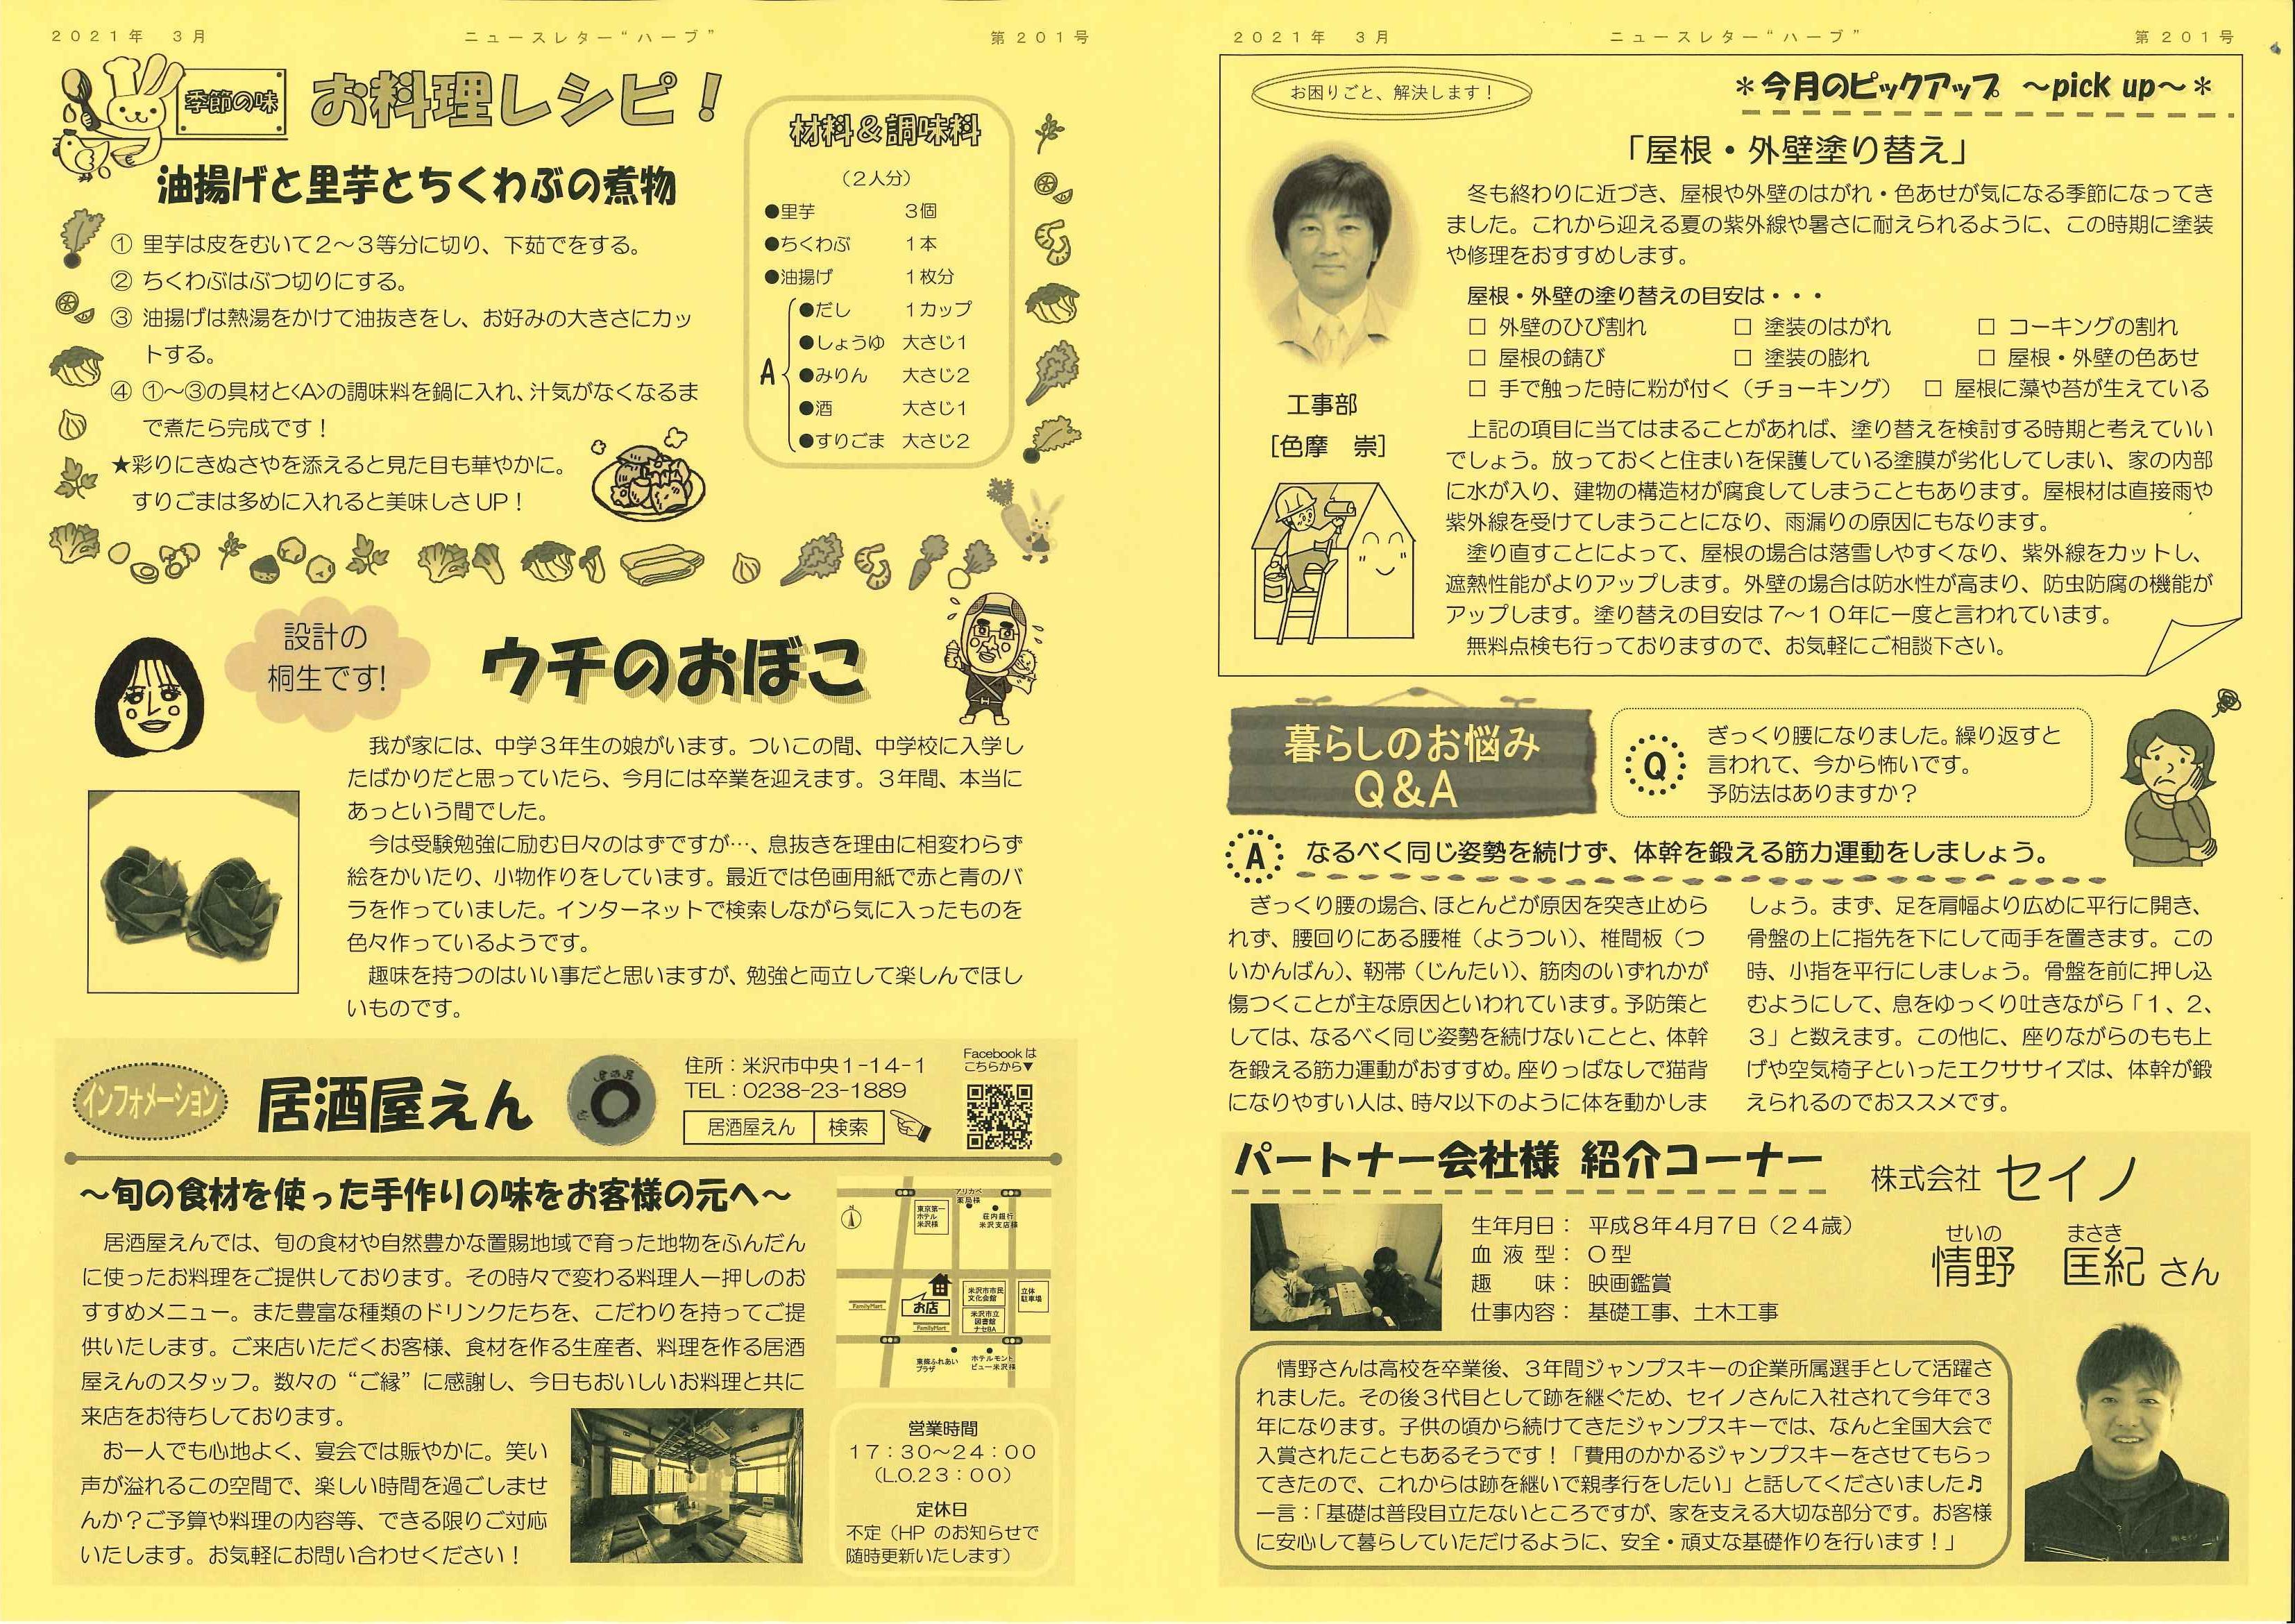 2021年　3月
ニュースレター“ハーブ”
第201号
季節の味
お料理レシピ！
油揚げと里芋とちくわぶの煮物
① 里芋は皮をむいて２～３等分に切り、下茹でをする。
② ちくわぶはぶつ切りにする。
③ 油揚げは熱湯をかけて油抜きをし、お好みの大きさにカッ
トする。
④ ①～③の具材と<A>の調味料を鍋に入れ、汁気がなくなるま
で煮たら完成です！
★彩りにきぬさやを添えると見た目も華やかに。
すりごまは多めに入れると美味しさUP！
材料＆調味料
（２人分）
●里芋　３個
●ちくわぶ　１本
●油揚げ　１枚分
A
●だし　１カップ
●しょうゆ　大さじ１
●みりん　大さじ２
●酒　大さじ１
●すりごま　大さじ２
設計の
桐生です！
ウチのおぼこ
我が家には、中学３年生の娘がいます。ついこの間、中学校に入学し
たばかりだと思っていたら、今月には卒業を迎えます。３年間、本当に
あっという間でした。
今は受験勉強に励む日々のはずですが…、息抜きを理由に相変わらず
絵をかいたり、小物作りをしています。最近では色画用紙で赤と青のバ
ラを作っていました。インターネットで検索しながら気に入ったものを
色々作っているようです。
趣味を持つのはいい事だと思いますが、勉強と両立して楽しんでほし
いものです。
インフォメーション
居酒屋えん
住所：米沢市中央１-１４-１
TEL：0238-23-1889
居酒屋えん　検索
Facebookは
こちらから▼
～旬の食材を使った手作りの味をお客様の元へ～
居酒屋えんでは、旬の食材や自然豊かな置賜地域で育った地物をふんだん
に使ったお料理をご提供しております。その時々で変わる料理人一押しのお
すすめメニュー。また豊富な種類のドリンクたちを、こだわりを持ってご提
供いたします。ご来店いただくお客様、食材を作る生産者、料理を作る居酒
屋えんのスタッフ。数々の“ご縁”に感謝し、今日もおいしいお料理と共に
来店をお待ちしております。
お一人でも心地よく、宴会では賑やかに。笑い
声が溢れるこの空間で、楽しい時間を過ごしませ
んか？ご予算や料理の内容等、できる限りご対応
いたします。お気軽にお問い合わせください！
アリカベ
薬局様
東京第一
ホテル
米沢様
荘内銀行
米沢支店様
お店
FamilyMart
FamilyMart
米沢市市民
文化会館
立体
駐車場
米沢市立
図書館
ナセBA
東韻ふれあい
プラザ
ホテルモント
ビュー米沢様
営業時間
１７：３０～２４：００
（L.O.２３：００）
定休日
不定（HP のお知らせで
随時更新いたします）
2021年　3月
ニュースレター“ハーブ”
第201号
お困りごと、解決します！
＊今月のピックアップ　～pick up～＊
「屋根・外壁塗り替え」
工事部
［色摩　崇］
冬も終わりに近づき、屋根や外壁のはがれ・色あせが気になる季節になってき
ました。これから迎える夏の紫外線や暑さに耐えられるように、この時期に塗装
や修理をおすすめします。
屋根・外壁の塗り替えの目安は・・・
□ 外壁のひび割れ　□ 塗装のはがれ　□ コーキングの割れ
□ 屋根の錆び　□ 塗装の膨れ　□ 屋根・外壁の色あせ
□ 手で触った時に粉が付く（チョーキング）　□ 屋根に藻や苔が生えている
上記の項目に当てはまることがあれば、塗り替えを検討する時期と考えていい
でしょう。放っておくと住まいを保護している塗膜が劣化してしまい、家の内部
に水が入り、建物の構造材が腐食してしまうこともあります。屋根材は直接雨や
紫外線を受けてしまうことになり、雨漏りの原因にもなります。
塗り直すことによって、屋根の場合は落雪しやすくなり、紫外線をカットし、
遮熱性能がよりアップします。外壁の場合は防水性が高まり、防虫防腐の機能が
アップします。塗り替えの目安は７～１０年に一度と言われています。
無料点検も行っておりますので、お気軽にご相談下さい。
暮らしのお悩み
Q&A
Q
ぎっくり腰になりました。繰り返すと
言われて、今から怖いです。
予防法はありますか？
A
なるべく同じ姿勢を続けず、体幹を鍛える筋力運動をしましょう。
ぎっくり腰の場合、ほとんどが原因を突き止めら
れず、腰回りにある腰椎（ようつい）、椎間板（つ
いかんばん）、靭帯（じんたい）、筋肉のいずれかが
傷つくことが主な原因といわれています。予防策と
しては、なるべく同じ姿勢を続けないことと、体幹
を鍛える筋力運動がおすすめ。座りっぱなしで猫背
になりやすい人は、時々以下のように体を動かしま
しょう。まず、足を肩幅より広めに平行に開き、
骨盤の上に指先を下にして両手を置きます。この
時、小指を平行にしましょう。骨盤を前に押し込
むようにして、息をゆっくり吐きながら「１、２、
３」と数えます。この他に、座りながらのもも上
げや空気椅子といったエクササイズは、体幹が鍛
えられるのでおススメです。
パートナー会社様 紹介コーナー
株式会社 セイノ
生年月日：　平成８年４月７日（２４歳）
血 液 型：　Ｏ型
趣　　味：　映画鑑賞
仕事内容：　基礎工事、土木工事
せいの　まさき
情野　匡紀 さん
情野さんは高校を卒業後、３年間ジャンプスキーの企業所属選手として活躍さ
れました。その後３代目として跡を継ぐため、セイノさんに入社されて今年で３
年になります。子供の頃から続けてきたジャンプスキーでは、なんと全国大会で
入賞されたこともあるそうです！「費用のかかるジャンプスキーをさせてもらっ
てきたので、これからは跡を継いで親孝行をしたい」と話してくださいました♬
一言：「基礎は普段目立たないところですが、家を支える大切な部分です。お客様
に安心して暮らしていただけるように、安全・頑丈な基礎作りを行います！」